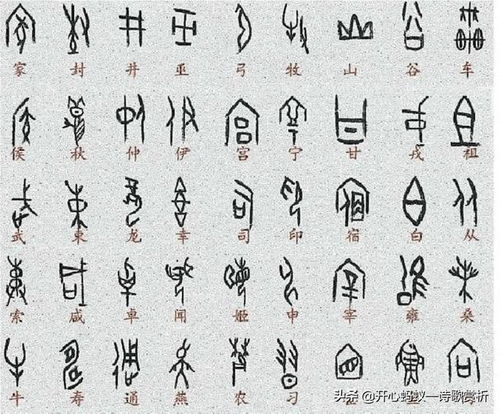 家 封 井 巫 弓 牧 山 谷 车
侯 秋 仲 伊 宫 宁 甘 戎 祖
武 東 龙 幸 司 印 宿 白 从
索 咸 卓 闻 姬 申 宰 雍 桑
牛 寿 通 燕 农 习
头条 @开心蚂蚁—诗歌赏析